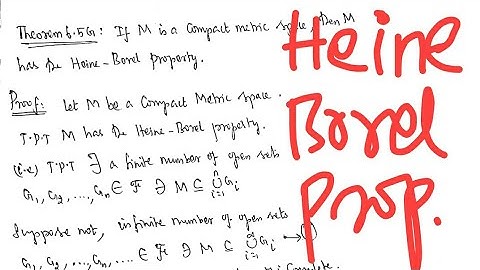 Theorem 6.5G: If M is a Compact metric space, then M
has the Heine-Borel property.
Proof: Let M be a Compact Metric space.
T.P.T M has the Heine-Borel property.
(i.e) T.P.T ∃ a finite number of open sets
G₁, G₂, ..., Gₙ ∈ F ∋ M ⊆ ⋃ⁿᵢ₌₁ Gᵢ
Suppose not, infinite number of open sets
G₁, G₂, ..., Gₙ, .... ∈ F ∋ M ⊆ ⋃ Gᵢ →
Complete.
Heine
Borel
Prop.